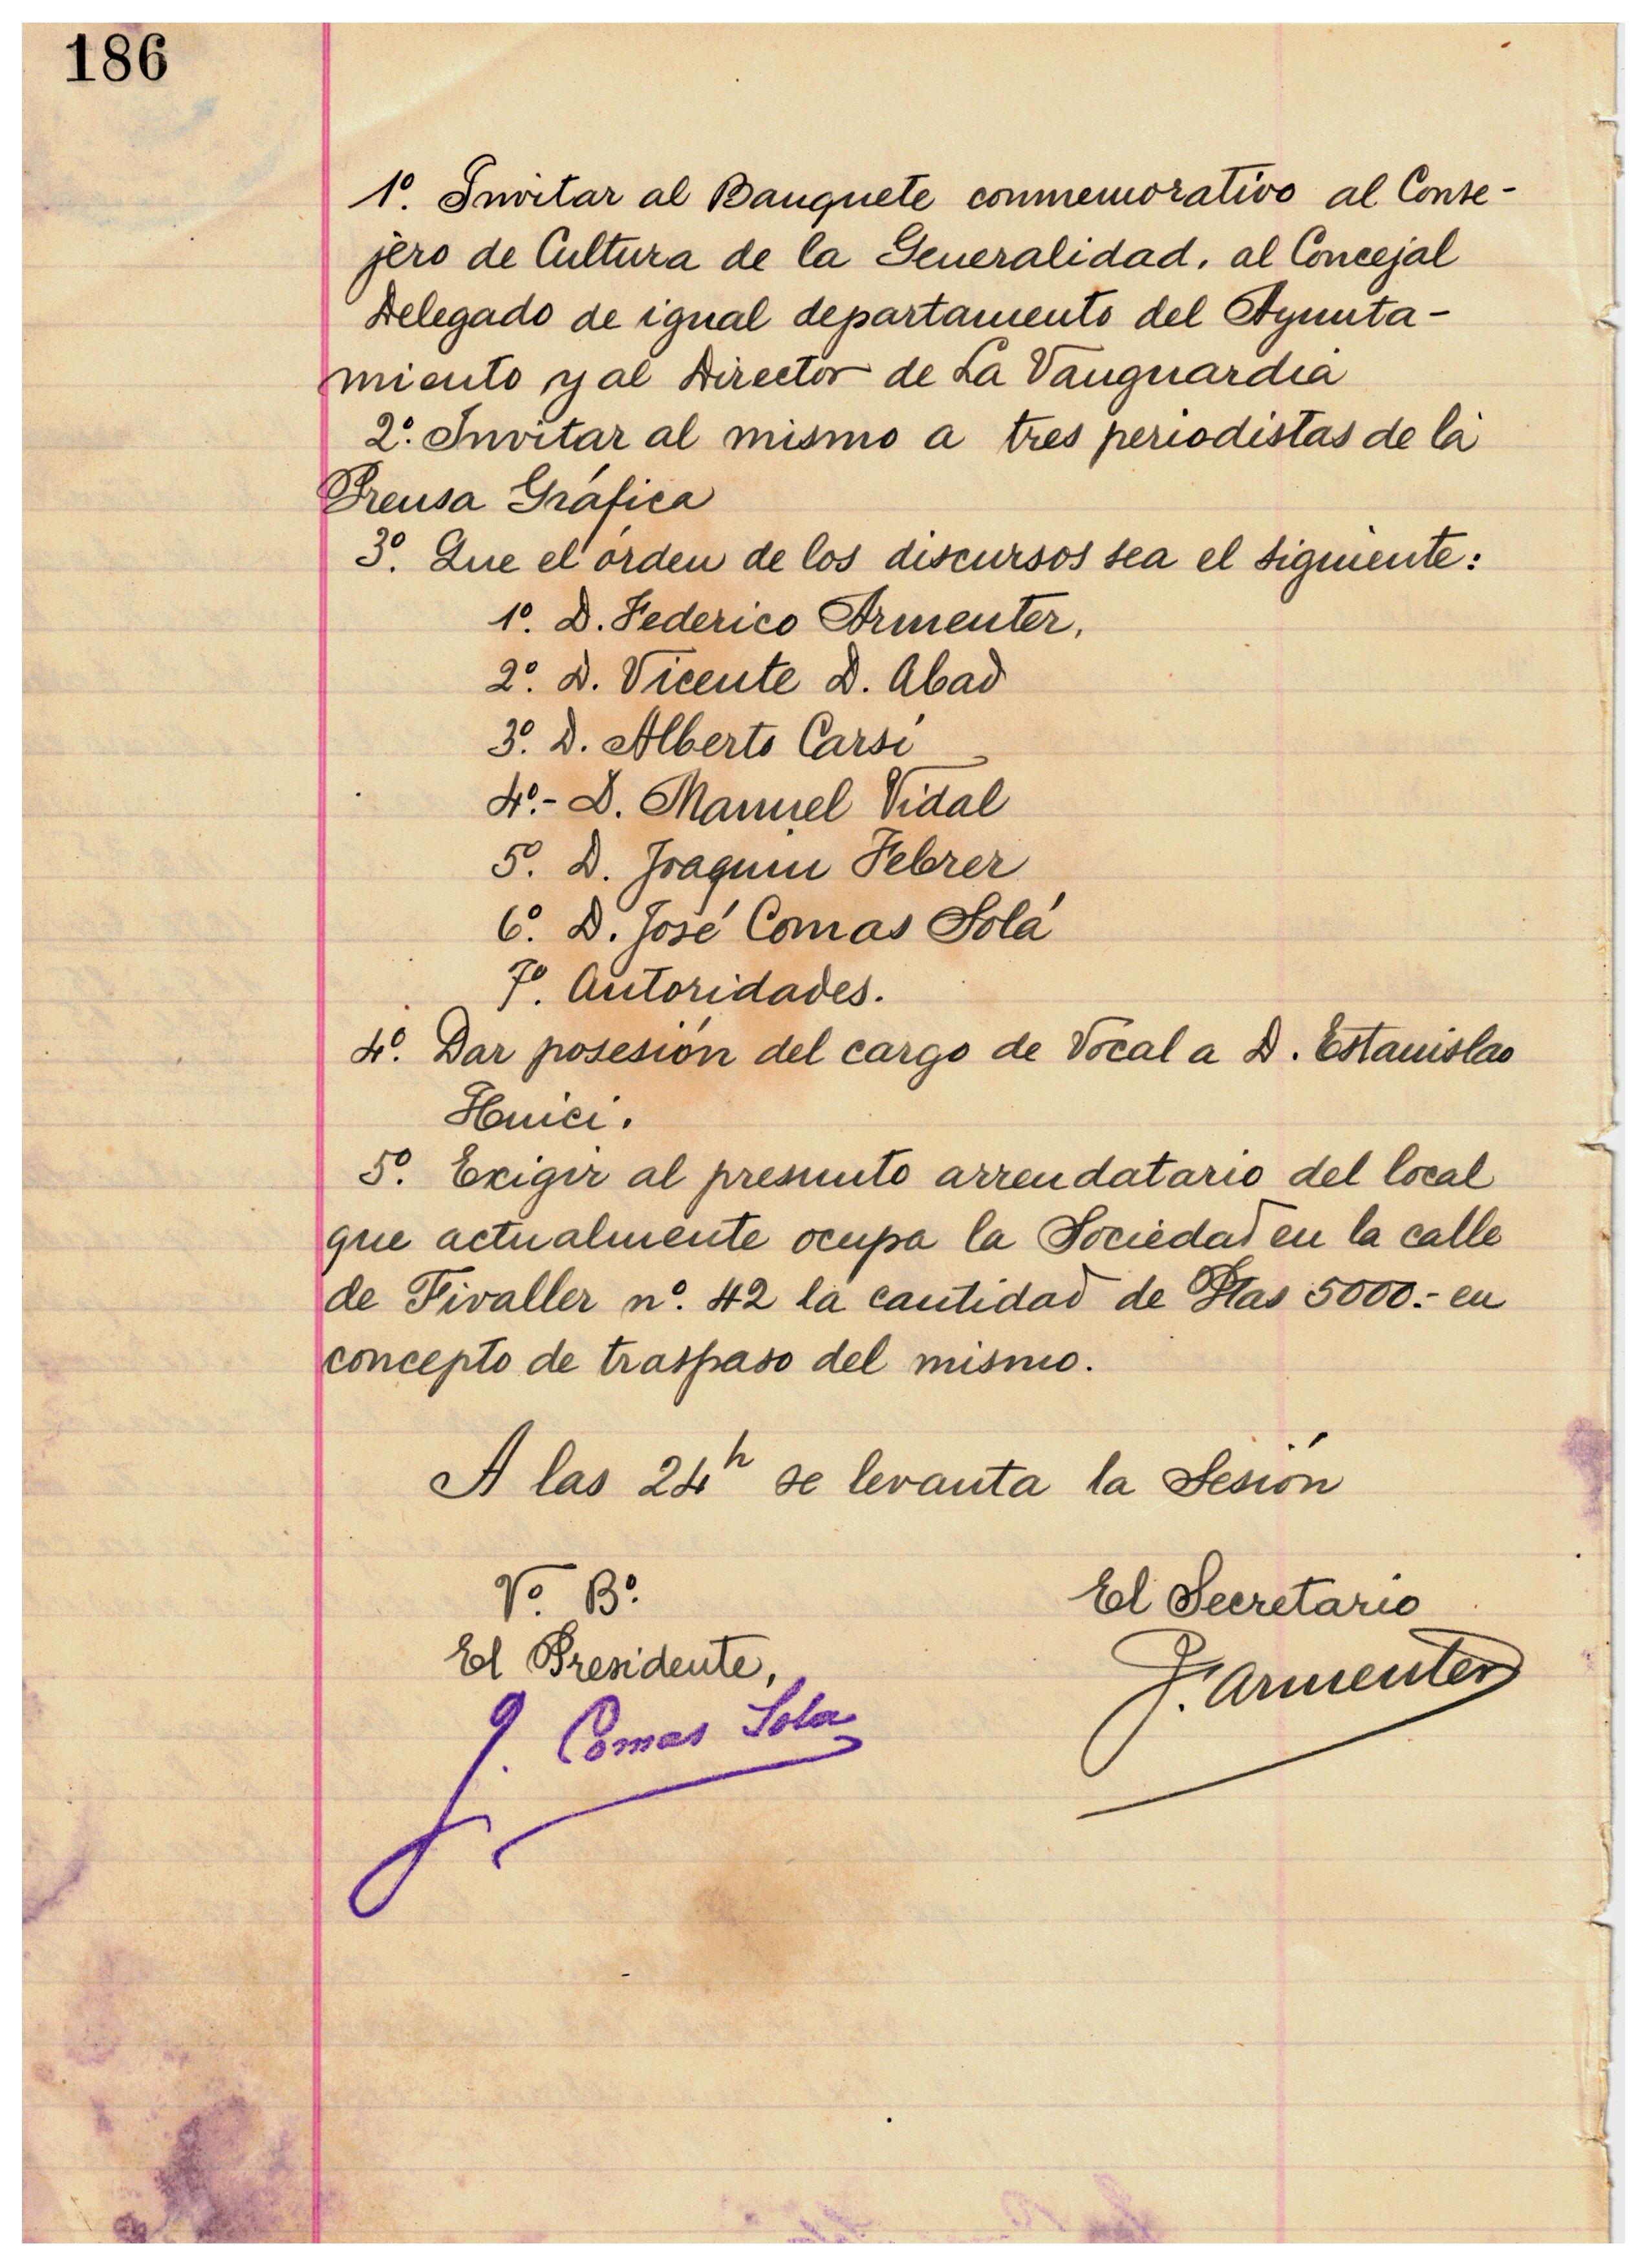 186
1º. Invitar al Banquete conmemorativo al Conse-
jero de Cultura de la Generalidad, al Concejal
Delegado de igual departamento del Ayunta-
miento y al Director de La Vanguardia
2º. Invitar al mismo a tres periodistas de la
Prensa Gráfica
3º. Que el órden de los discursos sea el siguiente:
1º. D. Federico Armenter,
2º. D. Vicente D. Abad
3º. D. Alberto Carsí
4º.- D. Manuel Vidal
5º. D. Joaquin Febrer
6º. D. José Comas Solá
7º. Autoridades.
4º. Dar posesión del cargo de Vocal a D. Estanislao
Huici.
5º. Exigir al presunto arrendatario del local
que actualmente ocupa la Sociedad en la calle
de Fivaller nº. 42 la cantidad de Ptas 5000.- en
concepto de traspaso del mismo.
A las 24h se levanta la Sesión
Vº. Bº.
El Secretario
El Presidente,
F. Armenter
J. Comas Sola